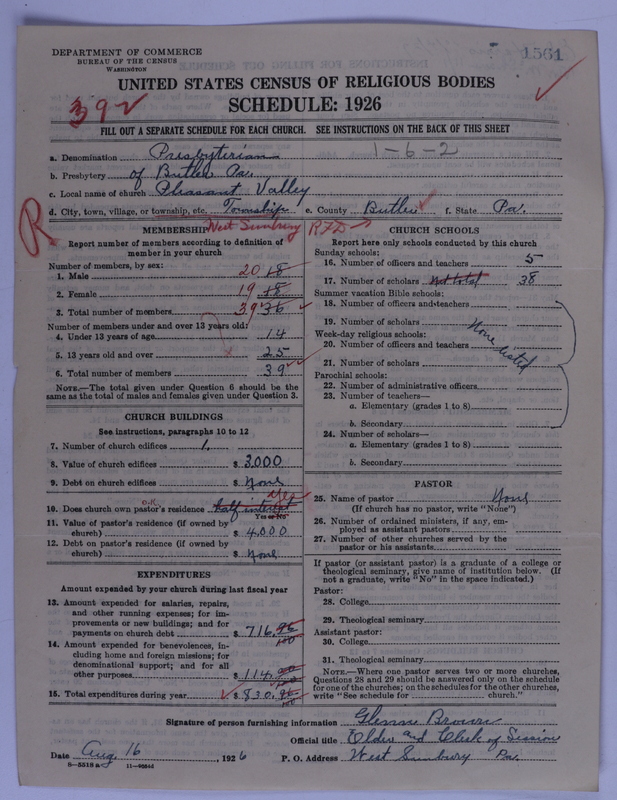 1561
DEPARTMENT OF COMMERCE
BUREAU OF THE CENSUS
WASHINGTON
UNITED STATES CENSUS OF RELIGIOUS BODIES
SCHEDULE: 1926
392
FILL OUT A SEPARATE SCHEDULE FOR EACH CHURCH. SEE INSTRUCTIONS ON THE BACK OF THIS SHEET
1-6-2
a. Denomination Presbyterian
b. Presbytery of Butler Pa.
c. Local name of church Pleasant Valley
d. City, town, village, or township, etc. Township e. County Butler f. State Pa.
R
West Sunbury RFD
MEMBERSHIP
Report number of members according to definition of
member in your church
Number of members, by sex:
1. Male 20 18
2. Female 19 18
3. Total number of members 39 36
Number of members under and over 13 years old:
4. Under 13 years of age 14
5. 13 years old and over 25
6. Total number of members 39
NOTE.—The total given under Question 6 should be the
same as the total of males and females given under Question 3.
CHURCH BUILDINGS
See instructions, paragraphs 10 to 12
7. Number of church edifices 1,
8. Value of church edifices $ 3,000
9. Debt on church edifices $ None
O.K. Yes
10. Does church own pastor's residence half interest
Yes or No
11. Value of pastor's residence (if owned by
church) $ 4,000
12. Debt on pastor's residence (if owned by
church) $ None
EXPENDITURES
Amount expended by your church during last fiscal year
13. Amount expended for salaries, repairs,
and other running expenses; for im-
provements or new buildings; and for
payments on church debt $ 716.96/100
14. Amount expended for benevolences, in-
cluding home and foreign missions; for
denominational support; and for all
other purposes $ 114.00/100
15. Total expenditures during year $ 830.96/100
CHURCH SCHOOLS
Report here only schools conducted by this church
Sunday schools:
16. Number of officers and teachers 5
17. Number of scholars Not total 38
Summer vacation Bible schools:
18. Number of officers and teachers
19. Number of scholars
Week-day religious schools:
20. Number of officers and teachers
21. Number of scholars
None listed
Parochial schools:
22. Number of administrative officers
23. Number of teachers—
a. Elementary (grades 1 to 8)
b. Secondary
24. Number of scholars—
a. Elementary (grades 1 to 8)
b. Secondary
PASTOR
25. Name of pastor None
(If church has no pastor, write "None")
26. Number of ordained ministers, if any, em-
ployed as assistant pastors
27. Number of other churches served by the
pastor or his assistants
If pastor (or assistant pastor) is a graduate of a college or
theological seminary, give name of institution below. (If
not a graduate, write "No" in the space indicated.)
Pastor:
28. College
29. Theological seminary
Assistant pastor:
30. College
31. Theological seminary
NOTE.—Where one pastor serves two or more churches,
Questions 28 and 29 should be answered only on the schedule
for one of the churches; on the schedules for the other churches,
write "See schedule for church."
Signature of person furnishing information Glenn Brown
Official title Elder and Clerk of Session
Date Aug 16, 1926 P. O. Address West Sunbury Pa.
8—5518a